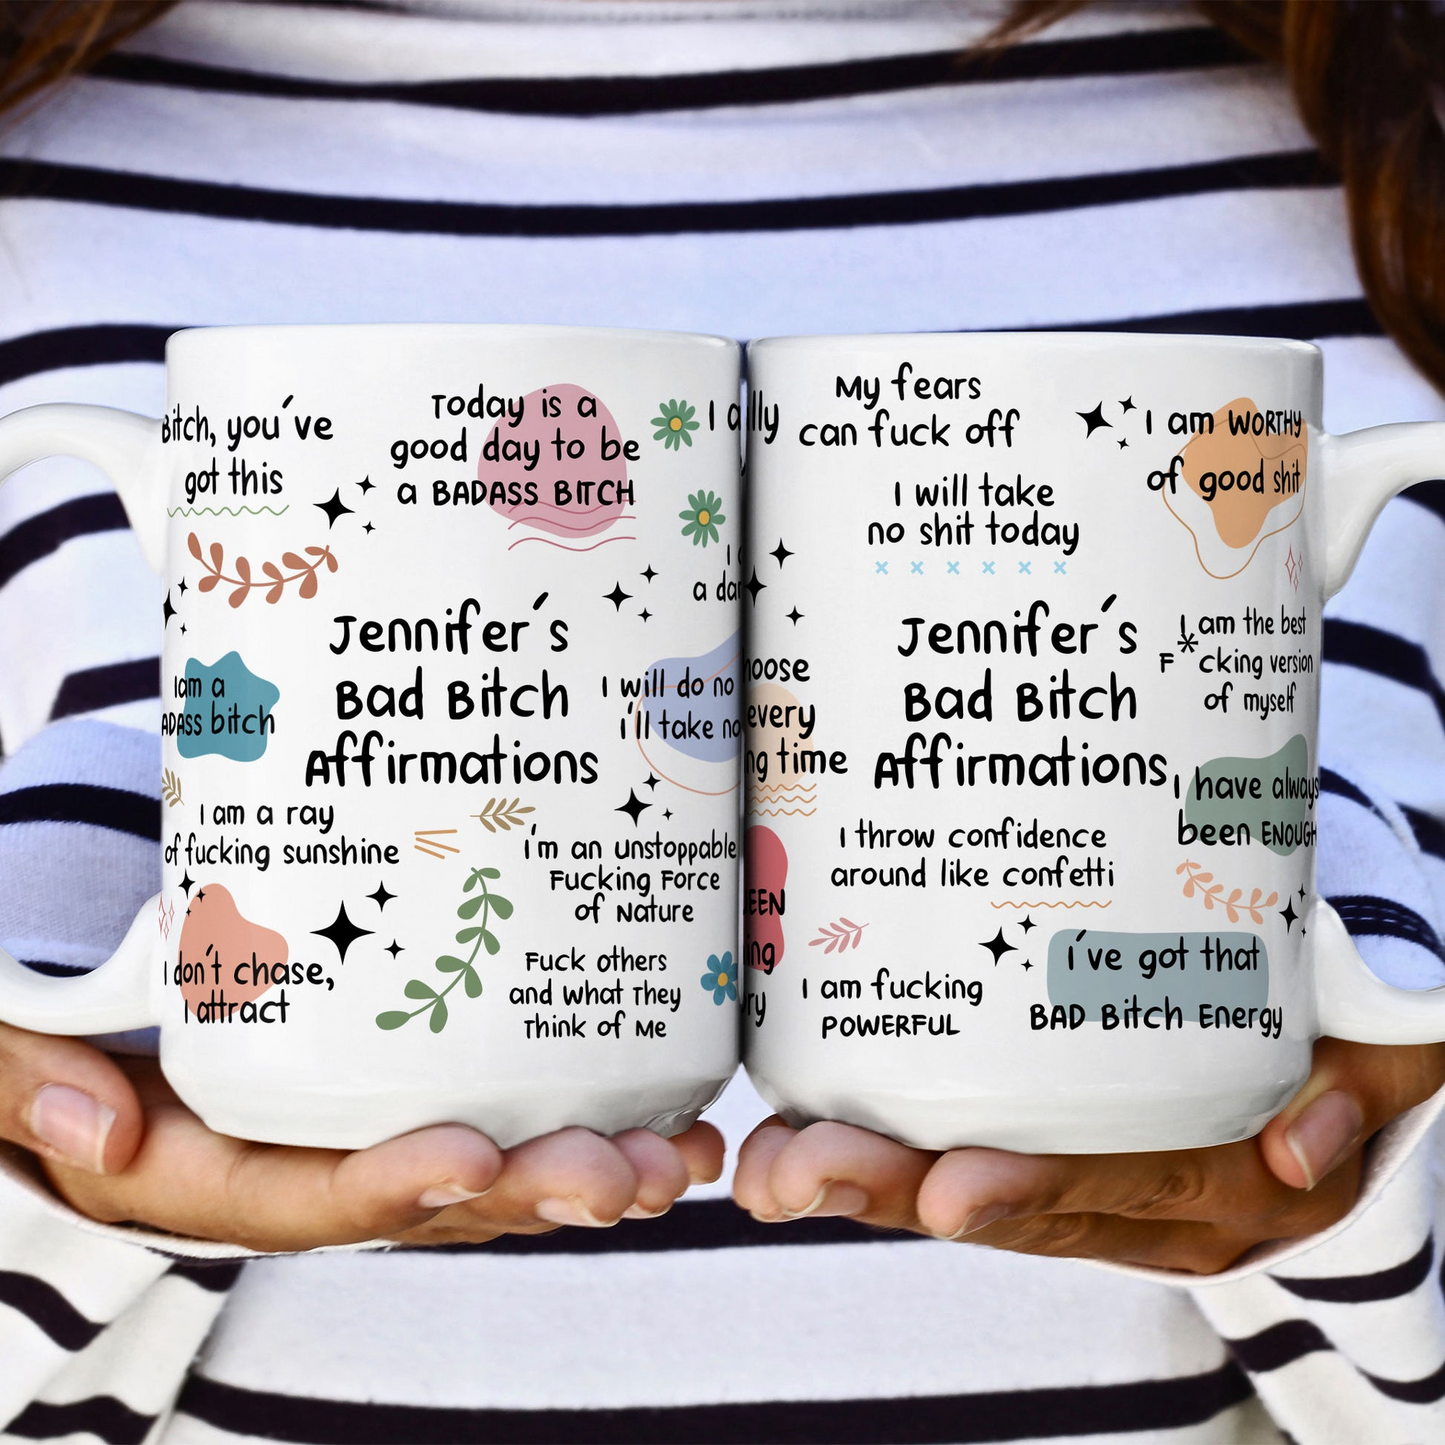 Bitch, you've
got this
Today is a
good day to be
a BADASS BITCH
I a
a
I will do no
i'll take no
Jennifer's
Bad Bitch
Affirmations
Iam a
BADASS bitch
I am a ray
of fucking sunshine
i'm an unstoppable
Fucking Force
of Nature
I don't chase,
I attract
Fuck others
and What They
Think of Me
My fears
can fuck off
I am WORTHY
of good shit
I will take
no shit today
Jennifer's
Bad Bitch
Affirmations
I am the best
F*cking version
of myself
every
time
I have always
been ENOUGH
I throw confidence
around like confetti
I am fucking
POWERFUL
i've got that
BAD Bitch Energy